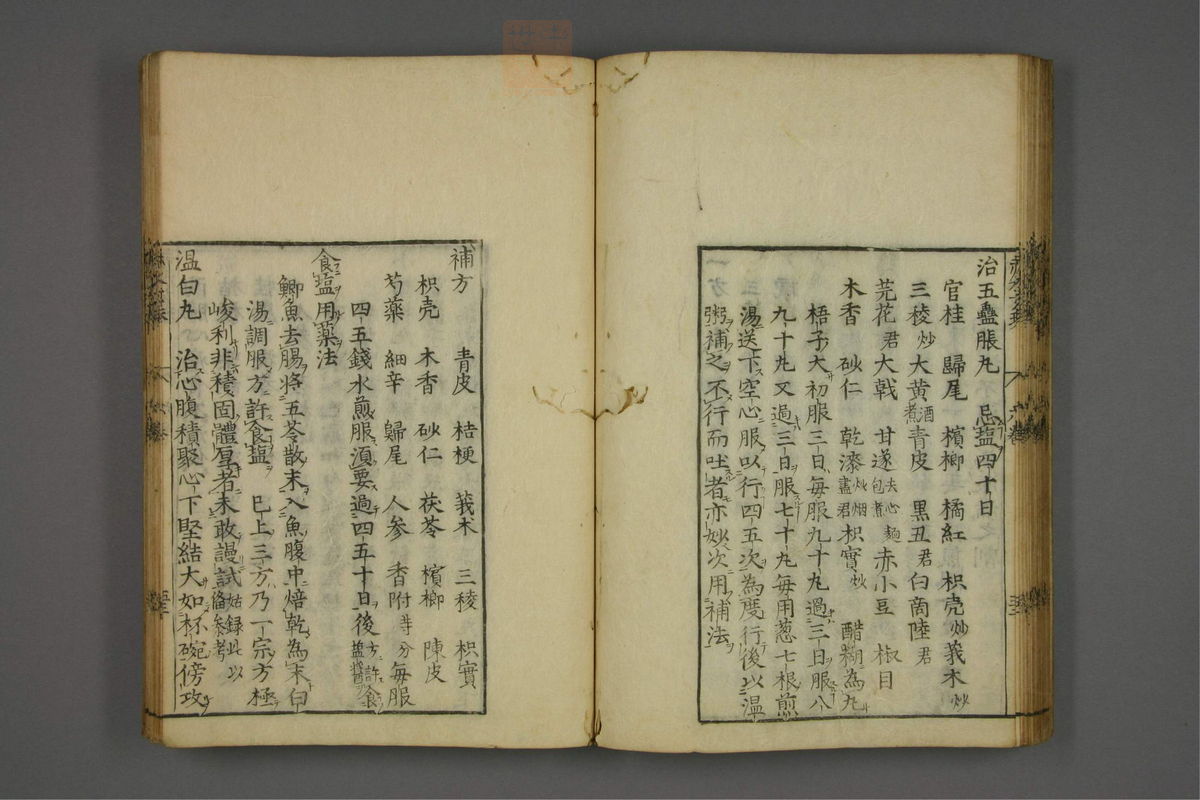 治五蠱脹丸　忌塩四十日
官桂　歸尾　檳榔　橘紅　枳壳炒莪朮炒
三稜炒大黄酒煮青皮　黒丑君白啇陸君
芫花君大戟　甘遂去心麺包煮赤小豆　椒目
木香　砂仁　乾漆炒烟盡君枳實炒　醋糊為丸
梧子大初服三日毎服九十丸過三日服八
九十丸又過三日服七十丸毎用葱七根煎
湯送下空心服以行四五次為度行後以温
粥補之不行而吐者亦妙次用補法
補方　　青皮　桔梗　莪朮　三稜　枳實
枳壳　木香　砂仁　茯苓　檳榔　陳皮
芍藥　細辛　歸尾　人参　香附等分毎服
四五錢水煎服須要過四五十日後方許食塩醬
食塩用藥法
鯽魚去腸将五苓散末入魚腹中焙乾為末白
湯調服方許食塩　已上三方乃一宗方極
峻利非積固體厚者未敢謾試姑録此以備参考
温白丸　治心腹積聚心下堅結大如杯碗傍攻